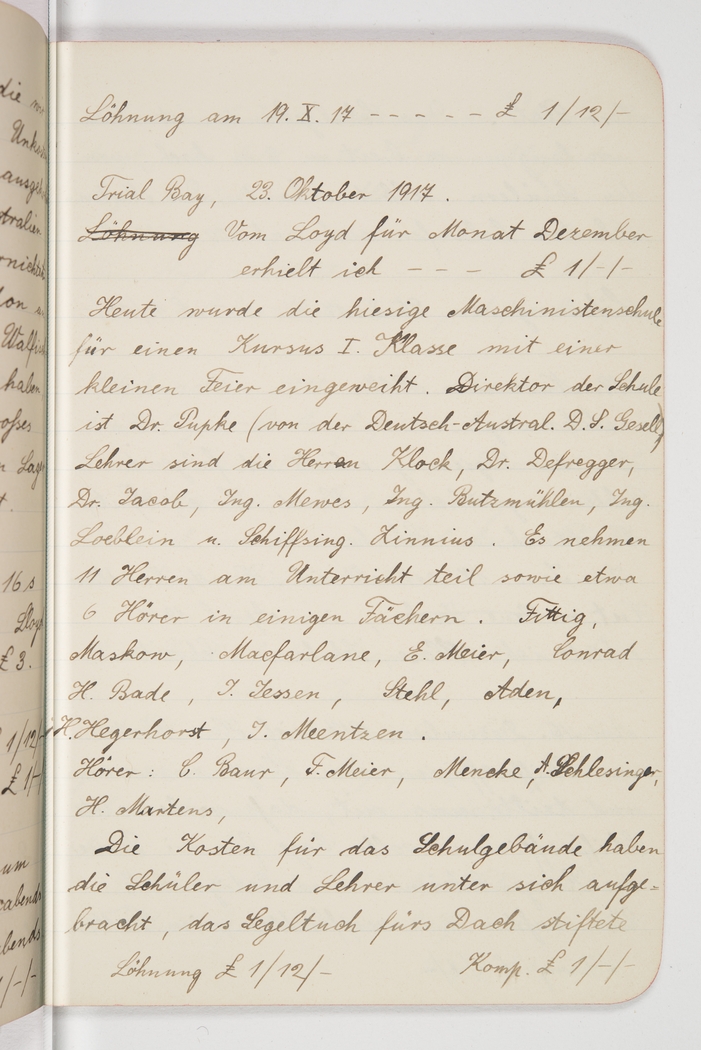 Löhnung am 19. X. 17 - - - - - £ 1/12/-
Trial Bay, 23. Oktober 1917.
Löhnung Vom Loyd für Monat Dezember
erhielt ich - - - £ 1/-/-
Heute wurde die hiesige Maschinistenschule
für einen Kursus I. Klasse mit einer
kleinen Feier eingeweiht. Direktor der Schule
ist Dr. Pupke (von der Deutsch-Austral. D. S. Gesell)
Lehrer sind die Herren Klock, Dr. Defregger,
Dr. Jacob, Ing. Mewes, Ing. Butzmühlen, Ing.
Loeblein u. Schiffsing. Zinnius. Es nehmen
11 Herren am Unterricht teil sowie etwa
6 Hörer in einigen Fächern. Fittig,
Maskow, Macfarlane, E. Meier, Conrad
H. Bade, J. Jessen, Stehl, Aden,
H. Hegerhorst, J. Meentzen.
Hörer: C. Baur, F. Meier, Mencke, A. Schlesinger,
H. Martens,
Die Kosten für das Schulgebäude haben
die Schüler und Lehrer unter sich aufge=
bracht, das Segeltuch fürs Dach stiftete
Löhnung £ 1/12/- Komp. £ 1/-/-